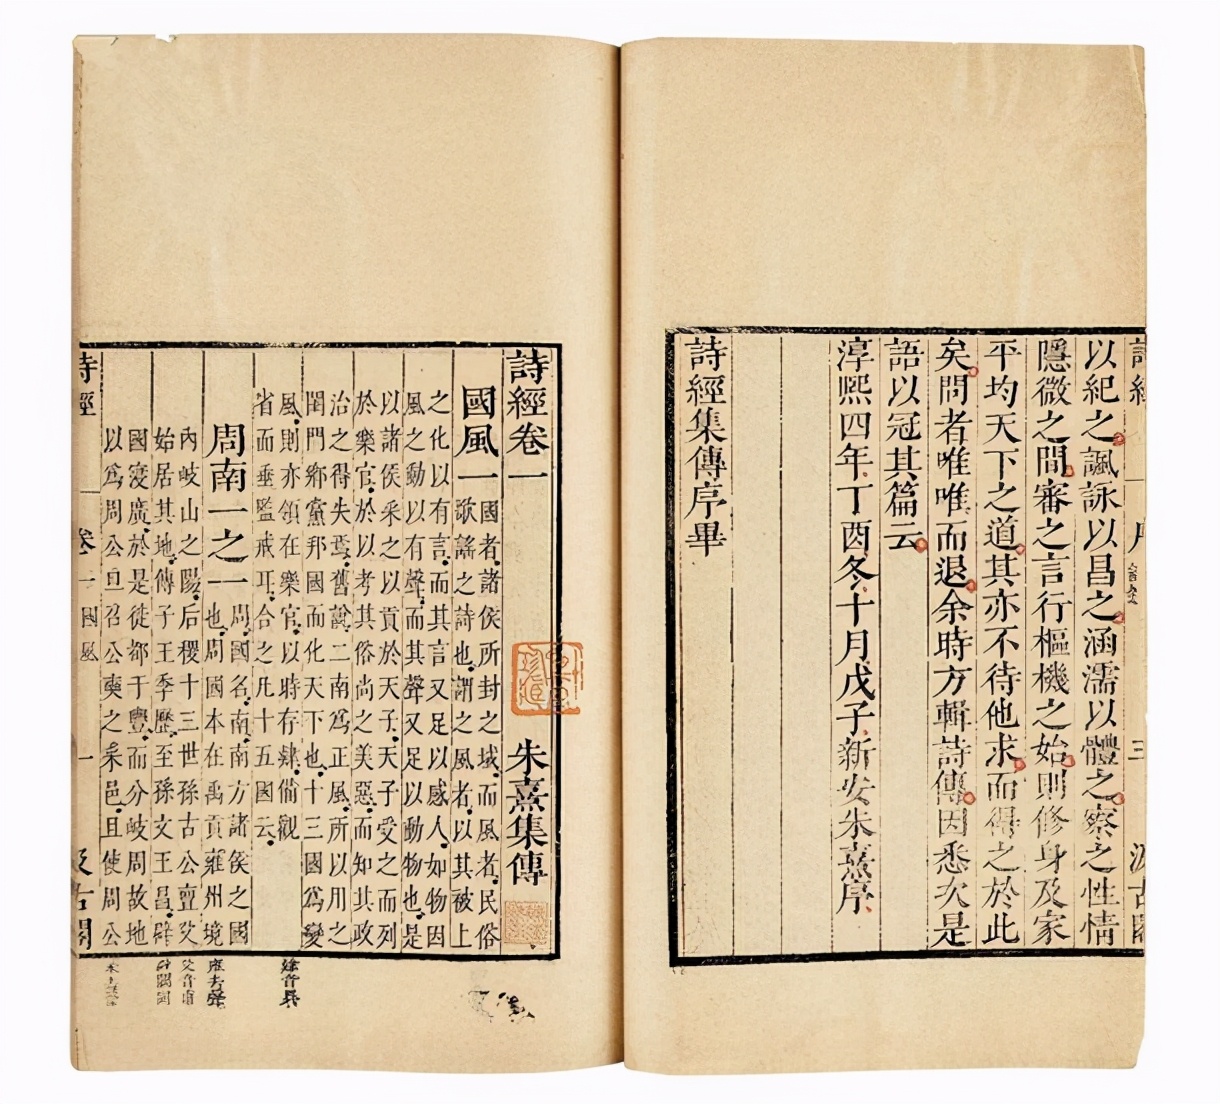 以紀之諷詠以昌之涵濡以體之察之性情
隱微之間審之言行樞機之始則修身及家
平均天下之道其亦不待他求而得之於此
矣問者唯唯而退余時方輯詩傳因悉次是
語以冠其篇云
淳熙四年丁酉冬十月戊子新安朱熹序
詩經集傳序畢
詩經卷一
朱熹集傳
國風一
國者諸侯所封之域而風者民俗
歌謠之詩也謂之風者以其被上
之化以有言而其言又足以感人如物因
風之動以有聲而其聲又足以動物也是
以諸侯采之以貢於天子天子受之而列
於樂官於以考其俗尚之美惡而知其政
治之得失焉舊說二南為正風所以用之
閨門鄉黨邦國而化天下也十三國為變
風則亦領在樂官以時存肄備觀
省而垂監戒耳合之凡十五國云
周南一之一
周國名南南方諸侯之國
也周國本在禹貢雍州境
內岐山之陽后稷十三世孫古公亶父
始居其地傳子王季歷至孫文王昌辟
國寖廣於是徙都于豐而分岐周故地
以為周公旦召公奭之采邑且使周公
詩經
卷一
國風
一
汲古閣